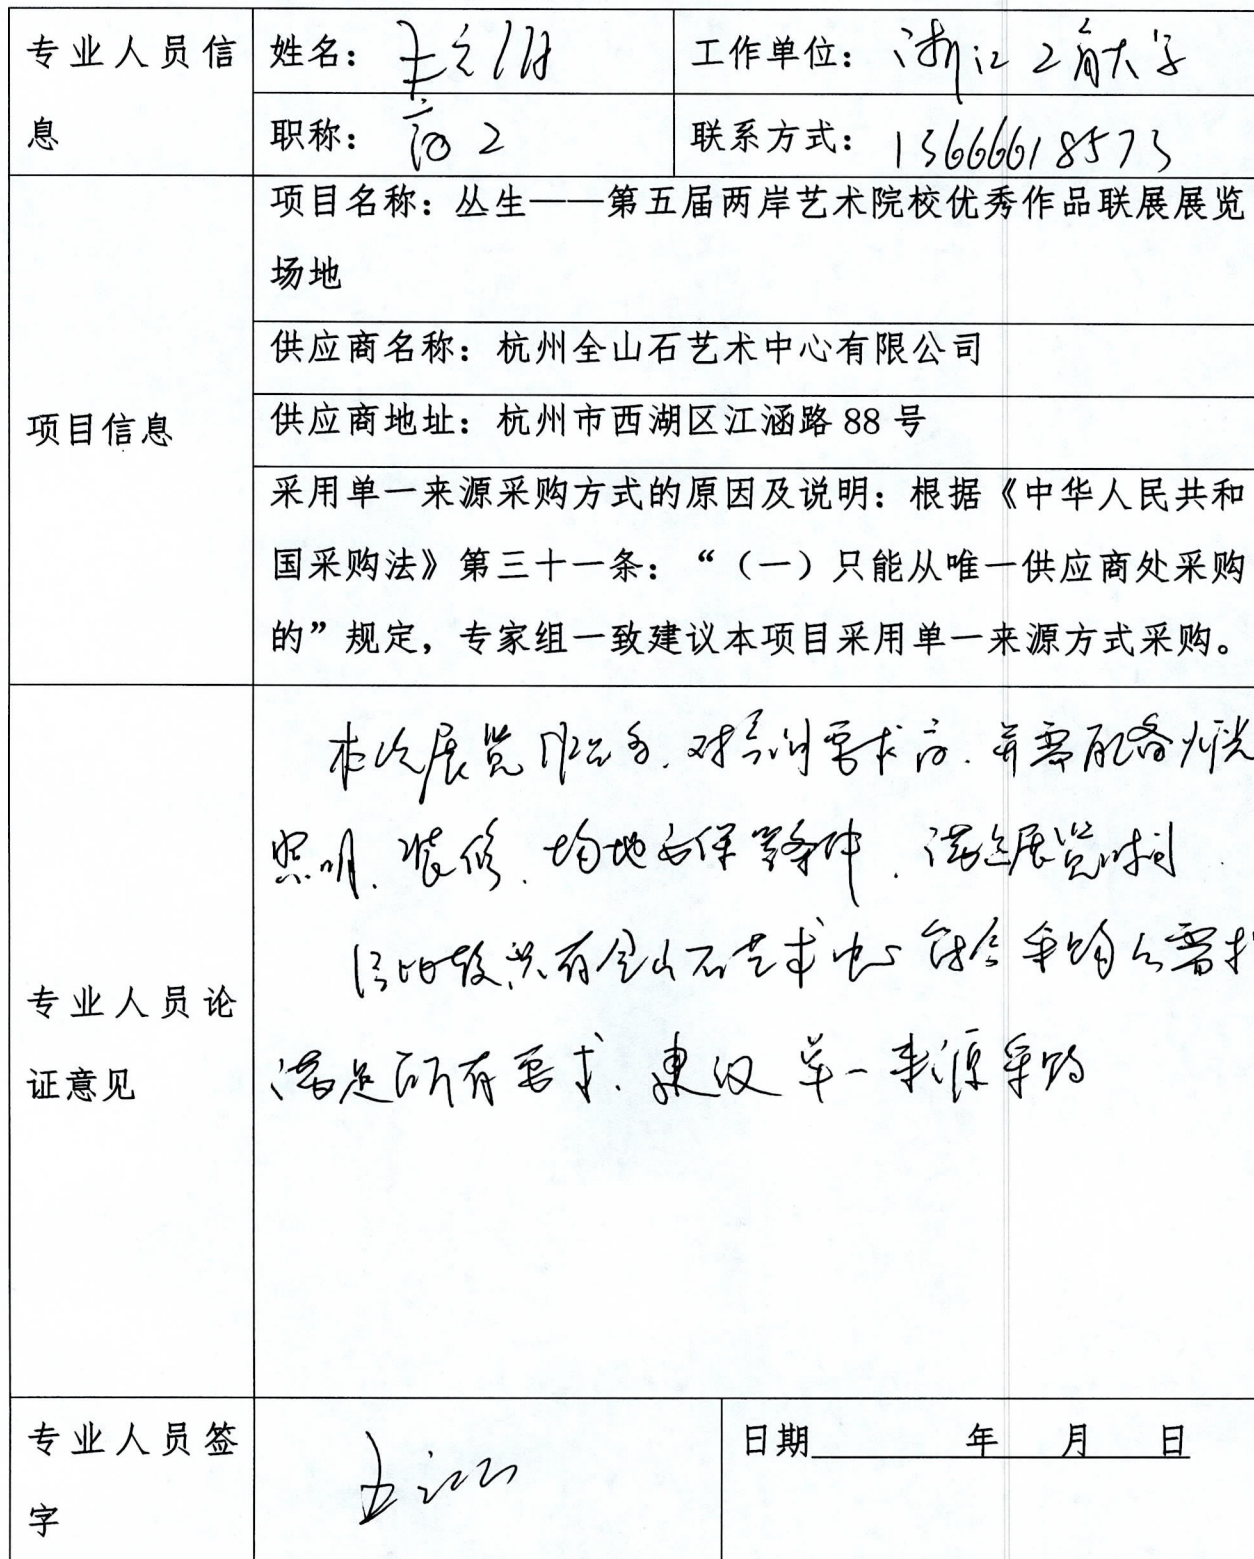 专业人员信息
姓名：
工作单位：浙江工商大学
职称：高工
联系方式：13666618573
项目信息
项目名称：丛生——第五届两岸艺术院校优秀作品联展展览
场地
供应商名称：杭州全山石艺术中心有限公司
供应商地址：杭州市西湖区江涵路 88 号
采用单一来源采购方式的原因及说明：根据《中华人民共和
国采购法》第三十一条：“（一）只能从唯一供应商处采购
的”规定，专家组一致建议本项目采用单一来源方式采购。
专业人员论
证意见
本次展览 对 要求高．并需配备灯光
照明、装修、场地安保等条件．满足展览时间．
经比较只有全山石艺术中心符合采购人需求
满足所有要求．建议单一来源采购
专业人员签
字
日期 年 月 日